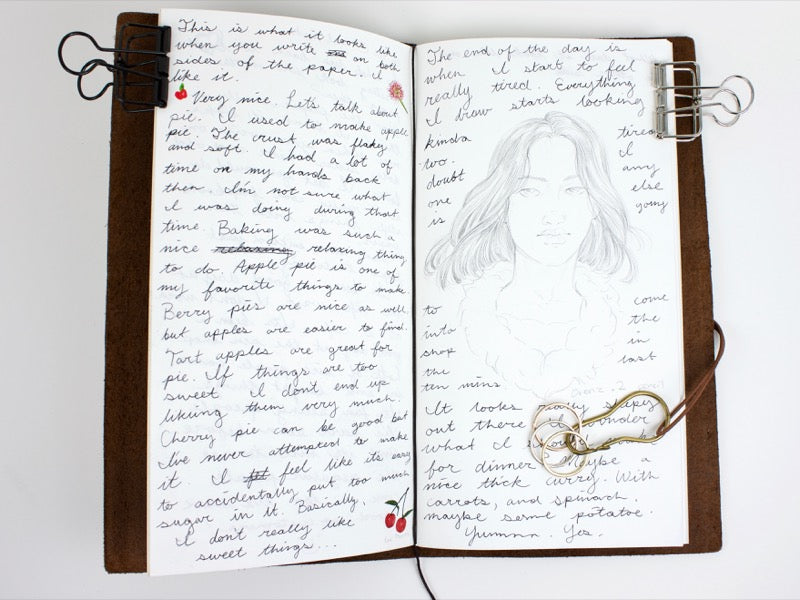 This is what it looks like
when you write on both
sides of the paper. I
like it.
Very nice. Let's talk about
pie. I used to make apple
pie. The crust was flaky
and soft. I had a lot of
time on my hands back
then. I'm not sure what
I was doing during that
time. Baking was such a
nice relaxing relaxing thing
to do. Apple pie is one of
my favorite things to make.
Berry pies are nice as well,
but apples are easier to find.
Tart apples are great for
pie. If things are too
sweet I don't end up
likiing them very much.
Cherry pie can be good but
I've never attempted to make
it. I feel like it's easy
to accidentally put too much
sugar in it. Basically,
I don't really like
sweet things...
The end of the day is
when I start to feel
really tired. Everything
I draw starts looking
kinda tired
too. I
doubt any
one else
is going
to come
into the
shop in
the last
ten mins.
It looks really
out there. I wonder
what I
for dinner. Maybe a
nice thick curry. With
carrots, and spinach.
maybe some potatoe.
Yummm. Yes.